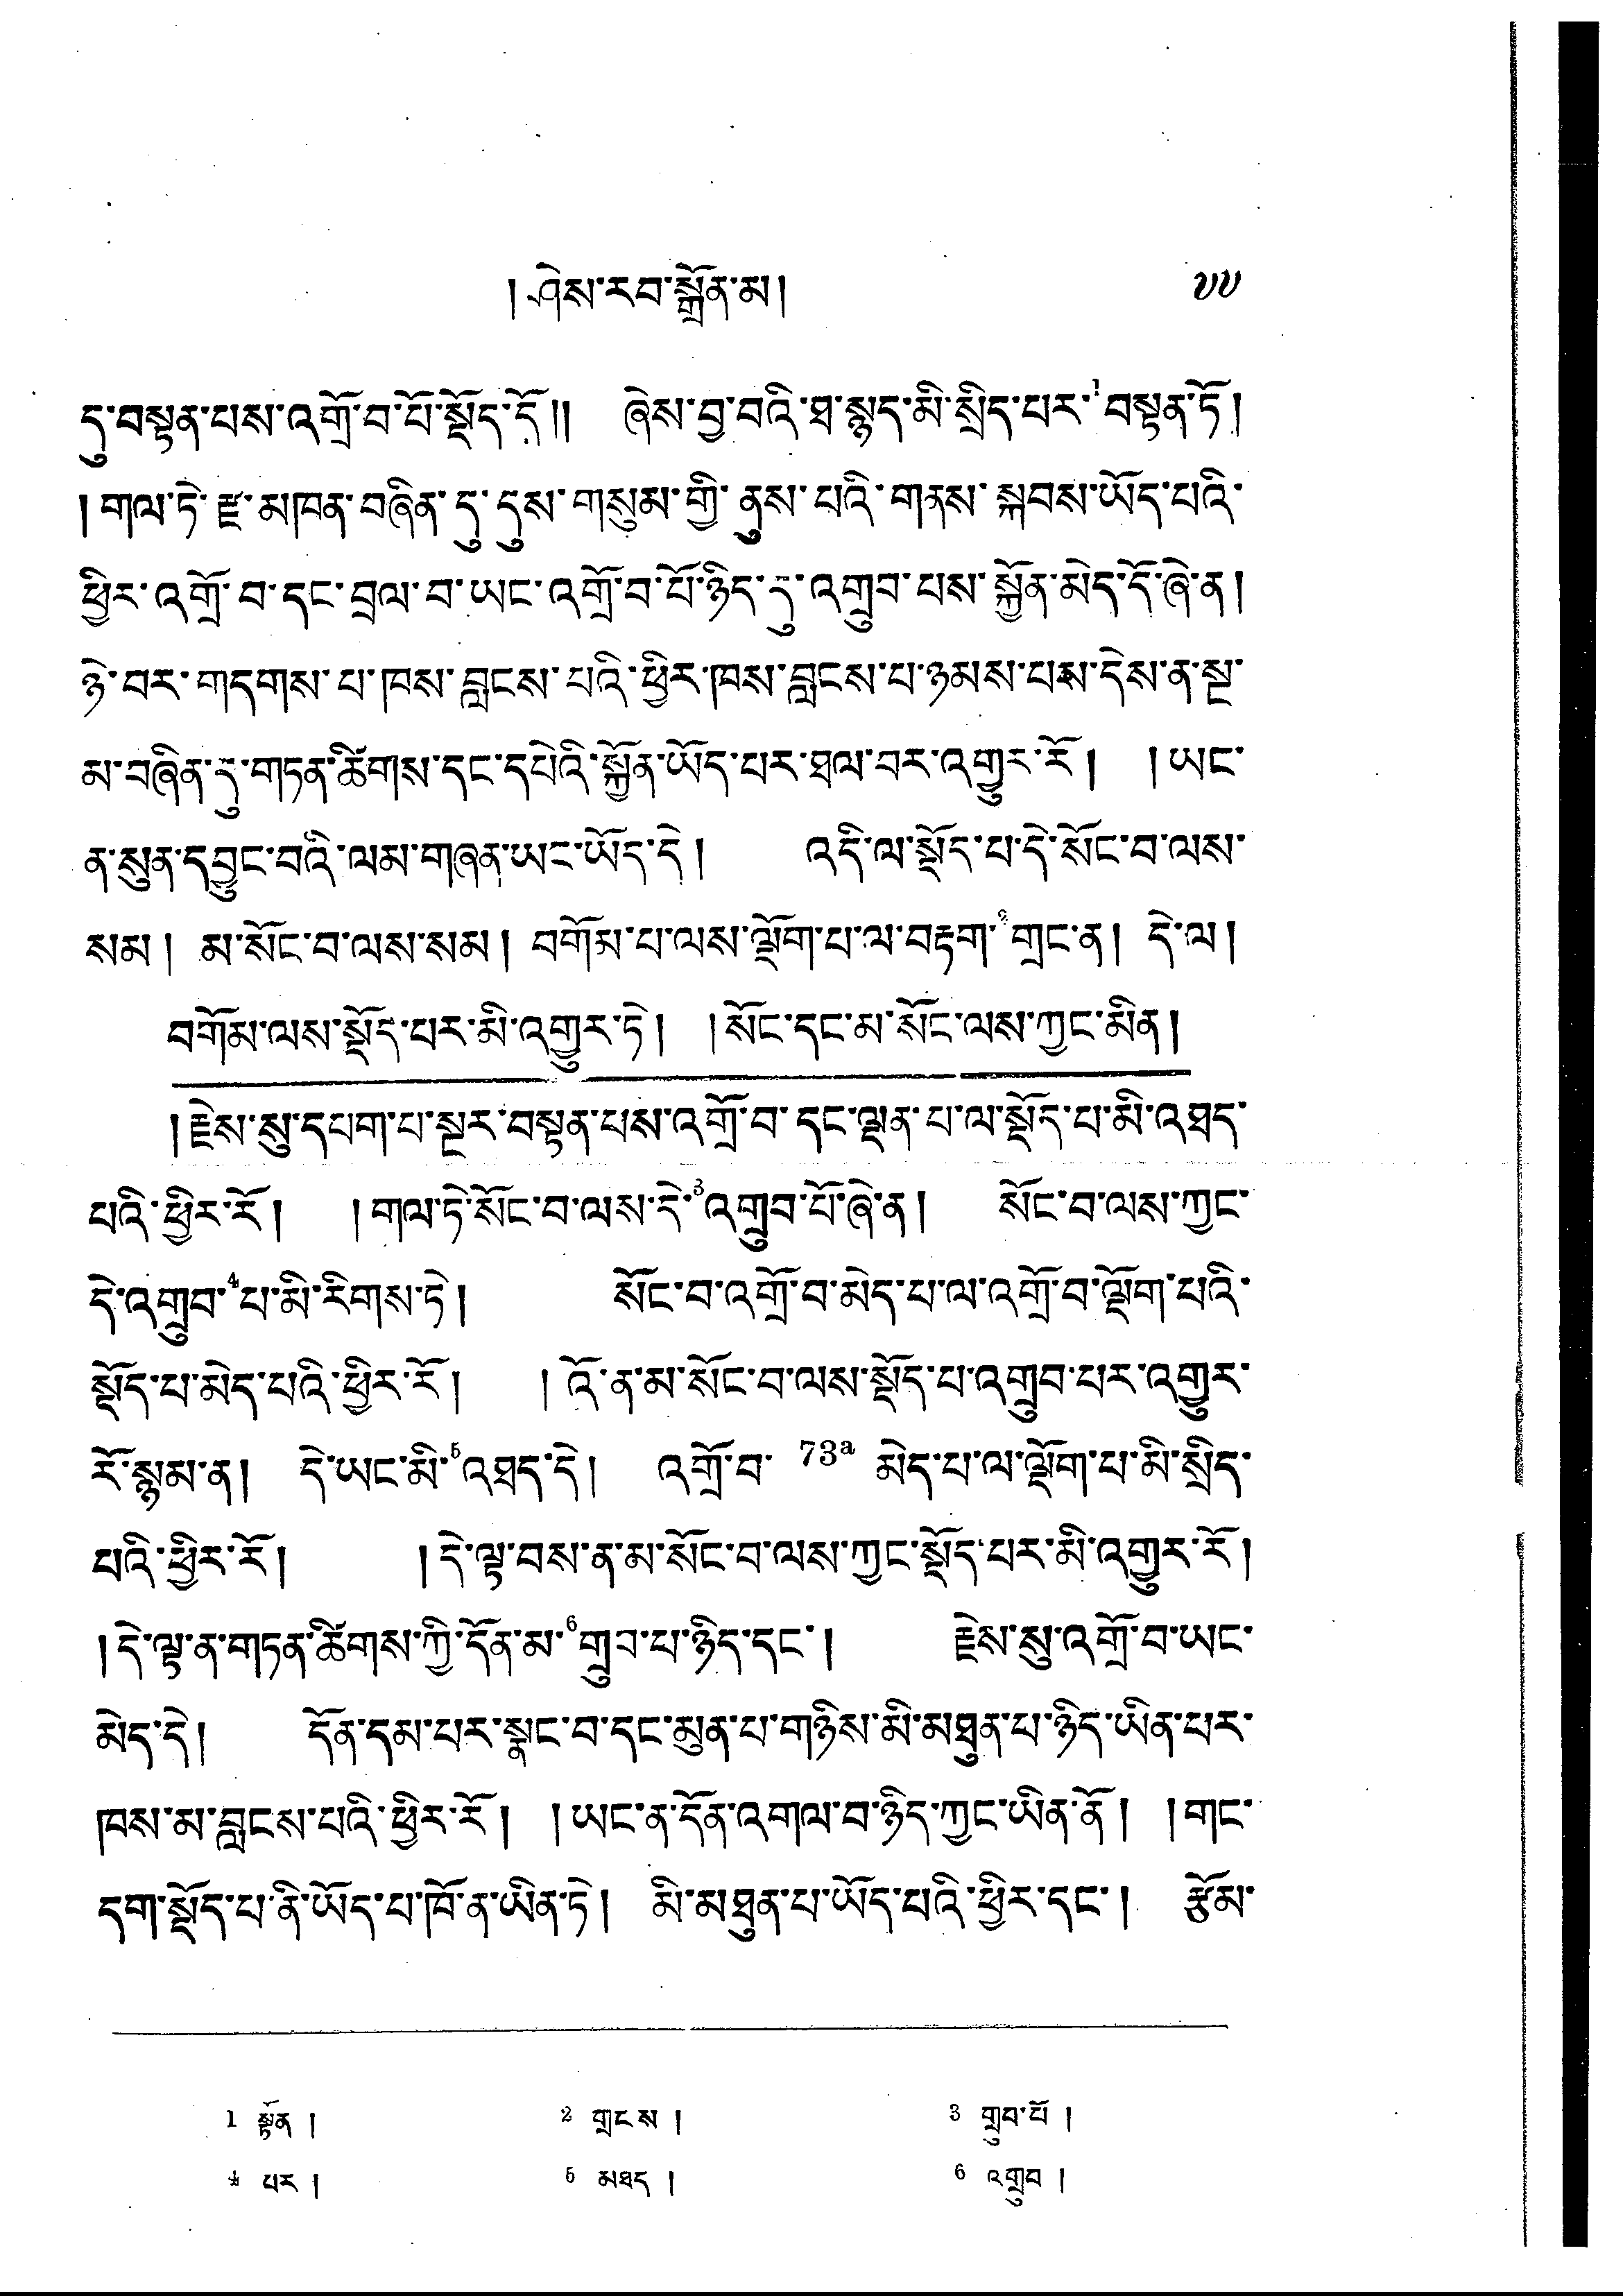 ། ཤེས་རབ་སྒྲོན་མ། ༥༥
དུ་བསྟན་པས་འགྲོ་བ་པོ་སྡོད་དོ།། ཞེས་བྱ་བའི་ཐ་སྙད་མི་སྲིད་པར་¹བསྟན་ཏོ།
། གལ་ཏེ་རྫ་མཁན་བཞིན་དུ་དུས་གསུམ་གྱི་ནུས་པའི་གནས་སྐབས་ཡོད་པའི་
ཕྱིར་འགྲོ་བ་དང་བྲལ་བ་ཡང་འགྲོ་བ་པོ་ཉིད་དུ་འགྲུབ་པས་སྐྱོན་མེད་དོ་ཞེ་ན།
ཉེ་བར་གདགས་པ་ཁས་བླངས་པའི་ཕྱིར་ཁས་བླངས་པ་ཉམས་པས་དེས་ན་སྔ་
མ་བཞིན་དུ་གཏན་ཚིགས་དང་དཔེའི་སྐྱོན་ཡོད་པར་ཐལ་བར་འགྱུར་རོ། ། ཡང་
ན་སུན་དབྱུང་བའི་ལམ་གཞན་ཡང་ཡོད་དེ། འདི་ལ་སྡོད་པ་དེ་སོང་བ་ལས་
སམ། མ་སོང་བ་ལས་སམ། བགོམ་པ་ལས་ལྡོག་པ་ལ་བརྟག་²གྲང་ན། དེ་ལ།
བགོམ་ལས་སྡོད་པར་མི་འགྱུར་ཏེ། །སོང་དང་མ་སོང་ལས་ཀྱང་མིན།
། རྗེས་སུ་དཔག་པ་སྔར་བསྟན་པས་འགྲོ་བ་དང་ལྡན་པ་ལ་སྡོད་པ་མི་འཐད་
པའི་ཕྱིར་རོ། ། གལ་ཏེ་སོང་བ་ལས་དེ་³འགྲུབ་པོ་ཞེ་ན། སོང་བ་ལས་ཀྱང་
དེ་འགྲུབ་⁴པ་མི་རིགས་ཏེ། སོང་བ་འགྲོ་བ་མེད་པ་ལ་འགྲོ་བ་ལྡོག་པའི་
སྡོད་པ་མེད་པའི་ཕྱིར་རོ། ། འོ་ན་མ་སོང་བ་ལས་སྡོད་པ་འགྲུབ་པར་འགྱུར་
རོ་སྙམ་ན། དེ་ཡང་མི་⁵འཐད་དེ། འགྲོ་བ་ 73a མེད་པ་ལ་ལྡོག་པ་མི་སྲིད་
པའི་ཕྱིར་རོ། ། དེ་ལྟ་བས་ན་མ་སོང་བ་ལས་ཀྱང་སྡོད་པར་མི་འགྱུར་རོ།
། དེ་ལྟ་ན་གཏན་ཚིགས་ཀྱི་དོན་མ་⁶གྲུབ་པ་ཉིད་དང་། རྗེས་སུ་འགྲོ་བ་ཡང་
མེད་དེ། དོན་དམ་པར་སྣང་བ་དང་མུན་པ་གཉིས་མི་མཐུན་པ་ཉིད་ཡིན་པར་
ཁས་མ་བླངས་པའི་ཕྱིར་རོ། ། ཡང་ན་དོན་འགལ་བ་ཉིད་ཀྱང་ཡིན་ནོ། ། གང་
དག་སྡོད་པ་ནི་ཡོད་པ་ཁོ་ན་ཡིན་ཏེ། མི་མཐུན་པ་ཡོད་པའི་ཕྱིར་དང་། རྩོམ་
1 སྟོན། 2 གྲངས། 3 གྲུབ་པོ།
4 པར། 5 མཐད། 6 འགྲུབ།